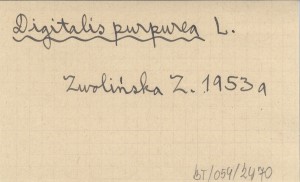 Digitalis purpurea L.
Zwolińska Z. 1953a
BT/059/2470